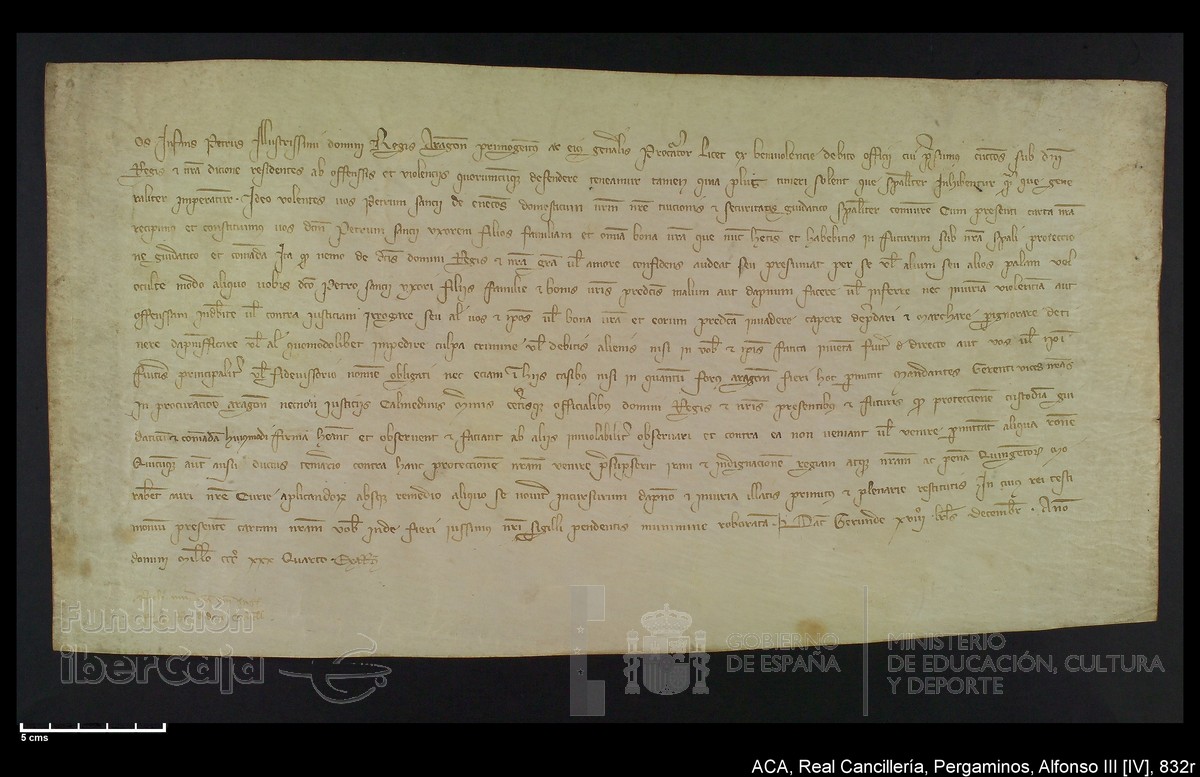 Nos Infans Petrus Illustrissimi domini Regis Aragon primogenitus ac eius generalis Procurator Licet ex benivolencie debito officii cui presumus cunctos sub dicti
Regis et nostra dicione residentes ab offensis et violenciis quorumcumque defendere teneamur tamen quia plus timeri solent que specialiter inhibentur quam que gene
raliter imperantur. Ideo volentes vos Petrum sancii de domesticum nostrum nostre tuicionis et securitatis guidatico specialiter comunire Cum presenti carta nostra
recipimus et constituimus vos dictum Petrum sancii uxorem filios familiam et omnia bona vestra que nunc habetis et habebitis in futurum sub nostra speciali proteccio
ne guidatico et comanda Ita quod nemo de dicti domini Regis et nostra gratia vel amore confidens audeat seu presumat per se vel alium seu alios palam vel
oculte modo aliquo vobis dicto Petro sancii uxori filiis familie et bonis vestris predictis malum aut dapnum facere vel inferre nec iniuriam violenciam aut
offensam indebite vel contra justiciam irrogare seu al vos et ipsos vel bona vestra et eorum predicta invadere capere depredari et marchare pignorare deti
nere dapnifficare vel al quomodolibet impedire culpa crimine vel debitis alienis nisi in vobis et ipsis fuerit inventa de directo aut vos vel ipsi
fueritis principaliter vel fideiussorio nomine obligati nec eciam in hiis casibus nisi in quantum forus aragon fieri hoc permittat Mandantes Gerenti vices nostras
in procuracione aragon necnon justiciis Calmedinis ceterisque officialibus domini Regis et nostris presentibus et futuris quod proteccionem custodiam gui
daticum et comandam huiusmodi firma habeant et observent et faciant ab aliis inviolabiliter observari et contra ea non veniant vel venire permittant aliqua racione
Quicumque autem ausu ductus temerario contra hanc proteccionem nostram venire presumpserit iram et indignacionem regiam atque nostram ac penam Quingentorum mo
rabet auri nostre Curie aplicandorum absque remedio aliquo se noverit incursurum dapno et iniuria illatis primitus et plenarie restitutis In cuius rei testi
monium presentem cartam nostram vobis inde fieri iussimus nostri sigilli pendentis munimine roboratam. Dat Gerunde xviii kls decembr. Anno
domini Millo ccc xxx Quarto
Fundación
iberCaja
GOBIERNO
DE ESPAÑA
MINISTERIO
DE EDUCACIÓN, CULTURA
Y DEPORTE
5 cms
ACA, Real Cancillería, Pergaminos, Alfonso III [IV], 832r